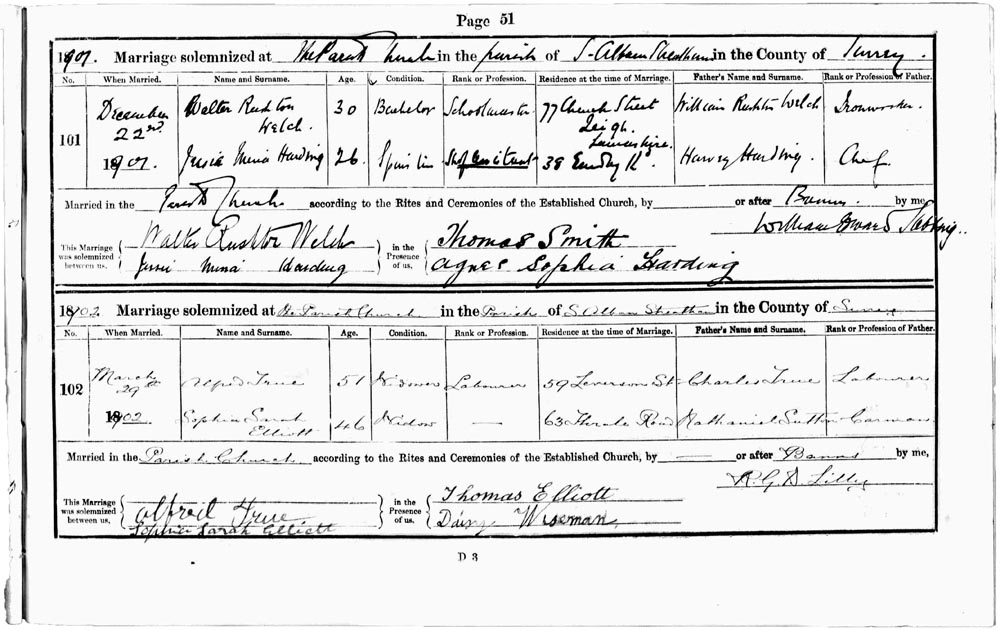 Page 51
1901. Marriage solemnized at The Parish Church in the parish of S. Alban Streatham in the County of Surrey.
No. When Married. Name and Surname. Age. Condition. Rank or Profession. Residence at the time of Marriage. Father's Name and Surname. Rank or Profession of Father.
101 December 22nd 1901. Walter Rushton Welch. 30 Bachelor Schoolmaster 77 Church Street Leigh. Lancashire. William Rushton Welch Ironworker.
Jessie Mina Harding 26. Spinster Shop assistant 38 Rd Harvey Harding. Chef.
Married in the Parish Church according to the Rites and Ceremonies of the Established Church, by or after Banns. by me,
William Edward
This Marriage was solemnized between us, Walter Rushton Welch in the Presence of us, Thomas Smith
Jessie Mina Harding Agnes Sophia Harding
1902 Marriage solemnized at the Parish Church in the Parish of S. Alban Streatham in the County of Surrey
No. When Married. Name and Surname. Age. Condition. Rank or Profession. Residence at the time of Marriage. Father's Name and Surname. Rank or Profession of Father.
102 March 29th 1902. Alfred True 51 Widower Labourer 59 Leverson St. Charles True Labourer
Sophia Sarah Elliott 46 Widow — 63 Thrale Road Nathaniel Sutton Carman
Married in the Parish Church according to the Rites and Ceremonies of the Established Church, by — or after Banns by me,
R G D Lilley
This Marriage was solemnized between us, Alfred True in the Presence of us, Thomas Elliott
Sophia Sarah Elliott Daisy Wiseman
D 3